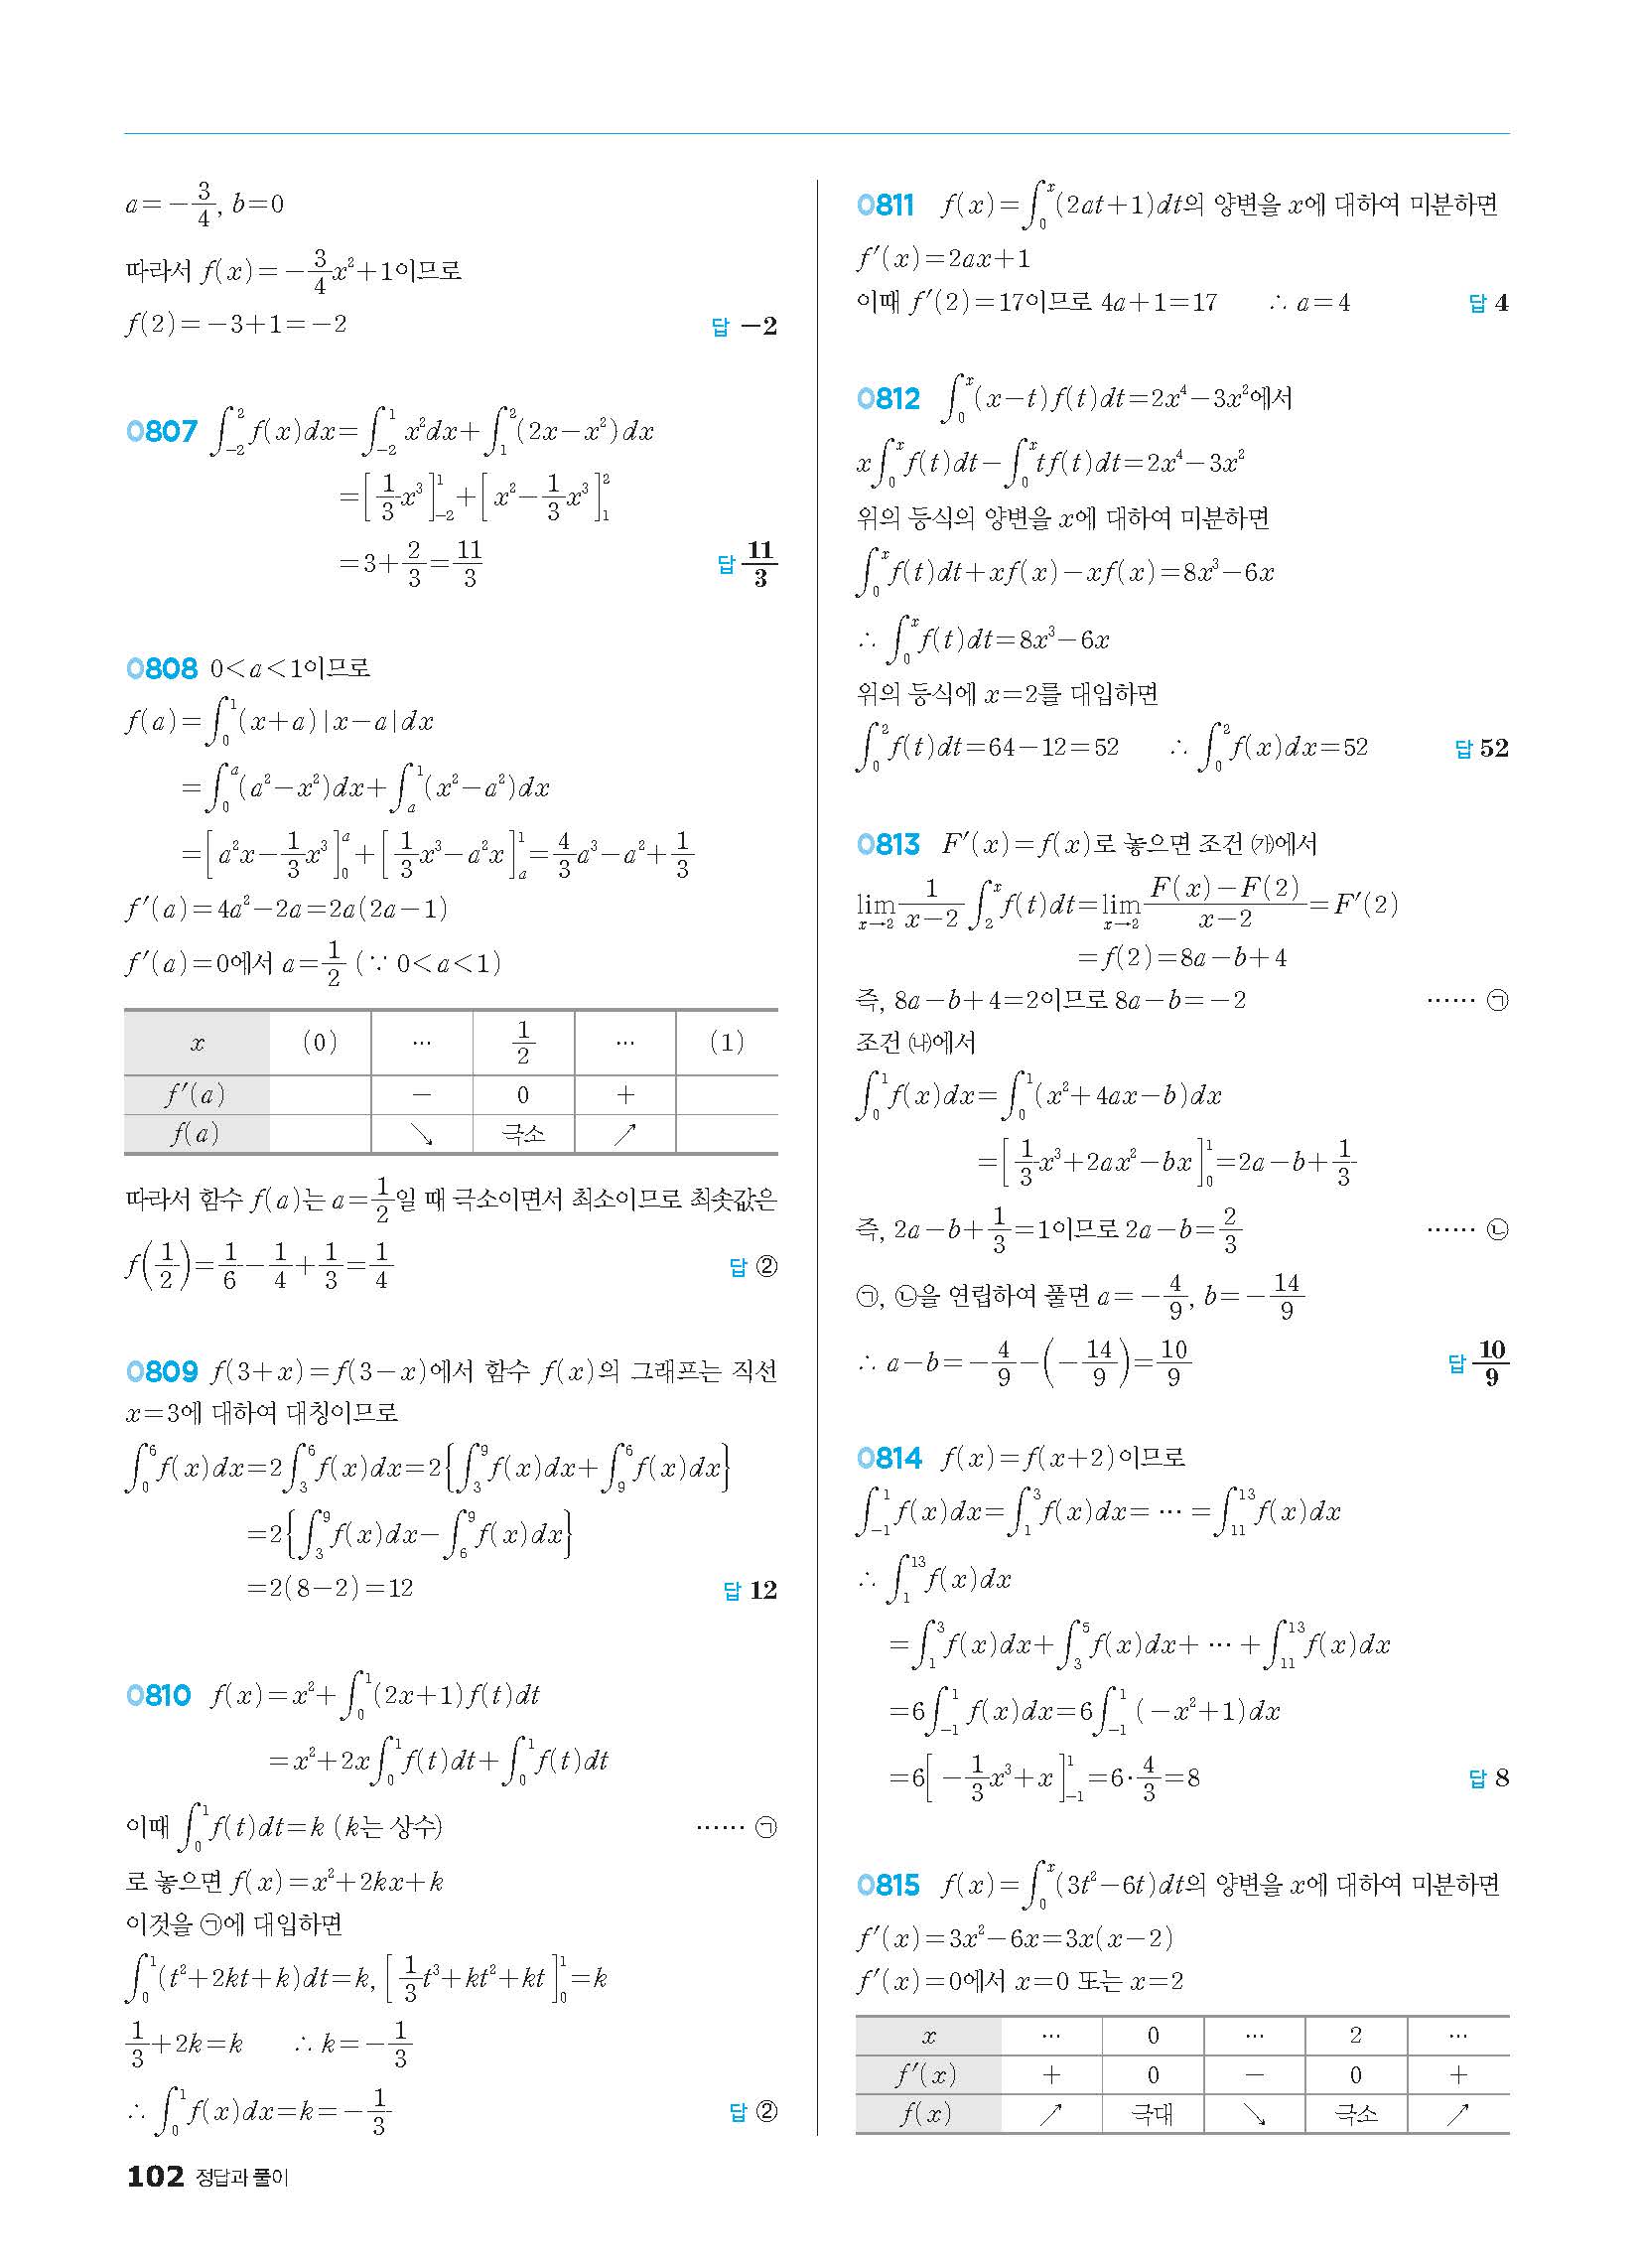 a=-3/4, b=0
따라서 f(x)=-3/4x²+1이므로
f(2)=-3+1=-2 답 -2
0807 ∫₋₂² f(x)dx=∫₋₂¹ x²dx+∫₁² (2x-x²)dx
=[1/3x³]₋₂¹+[x²-1/3x³]₁²
=3+2/3=11/3 답 11/3
0808 0<a<1이므로
f(a)=∫₀¹ (x+a)|x-a|dx
=∫₀ᵃ (a²-x²)dx+∫ₐ¹ (x²-a²)dx
=[a²x-1/3x³]₀ᵃ+[1/3x³-a²x]ₐ¹=4/3a³-a²+1/3
f′(a)=4a²-2a=2a(2a-1)
f′(a)=0에서 a=1/2 (∵ 0<a<1)
x (0) ⋯ 1/2 ⋯ (1)
f′(a) - 0 +
f(a) ↘ 극소 ↗
따라서 함수 f(a)는 a=1/2일 때 극소이면서 최소이므로 최솟값은
f(1/2)=1/6-1/4+1/3=1/4 답 ②
0809 f(3+x)=f(3-x)에서 함수 f(x)의 그래프는 직선
x=3에 대하여 대칭이므로
∫₀⁶ f(x)dx=2∫₃⁶ f(x)dx=2{∫₃⁹ f(x)dx+∫₉⁶ f(x)dx}
=2{∫₃⁹ f(x)dx-∫₆⁹ f(x)dx}
=2(8-2)=12 답 12
0810 f(x)=x²+∫₀¹ (2x+1)f(t)dt
=x²+2x∫₀¹ f(t)dt+∫₀¹ f(t)dt
이때 ∫₀¹ f(t)dt=k (k는 상수) ⋯⋯ ㉠
로 놓으면 f(x)=x²+2kx+k
이것을 ㉠에 대입하면
∫₀¹ (t²+2kt+k)dt=k, [1/3t³+kt²+kt]₀¹=k
1/3+2k=k ∴ k=-1/3
∴ ∫₀¹ f(x)dx=k=-1/3 답 ②
102 정답과 풀이
0811 f(x)=∫₀ˣ (2at+1)dt의 양변을 x에 대하여 미분하면
f′(x)=2ax+1
이때 f′(2)=17이므로 4a+1=17 ∴ a=4 답 4
0812 ∫₀ˣ (x-t)f(t)dt=2x⁴-3x²에서
x∫₀ˣ f(t)dt-∫₀ˣ tf(t)dt=2x⁴-3x²
위의 등식의 양변을 x에 대하여 미분하면
∫₀ˣ f(t)dt+xf(x)-xf(x)=8x³-6x
∴ ∫₀ˣ f(t)dt=8x³-6x
위의 등식에 x=2를 대입하면
∫₀² f(t)dt=64-12=52 ∴ ∫₀² f(x)dx=52 답 52
0813 F′(x)=f(x)로 놓으면 조건 ㈎에서
lim(x→2) 1/(x-2) ∫₂ˣ f(t)dt=lim(x→2) (F(x)-F(2))/(x-2)=F′(2)
=f(2)=8a-b+4
즉, 8a-b+4=2이므로 8a-b=-2 ⋯⋯ ㉠
조건 ㈏에서
∫₀¹ f(x)dx=∫₀¹ (x²+4ax-b)dx
=[1/3x³+2ax²-bx]₀¹=2a-b+1/3
즉, 2a-b+1/3=1이므로 2a-b=2/3 ⋯⋯ ㉡
㉠, ㉡을 연립하여 풀면 a=-4/9, b=-14/9
∴ a-b=-4/9-(-14/9)=10/9 답 10/9
0814 f(x)=f(x+2)이므로
∫₋₁¹ f(x)dx=∫₁³ f(x)dx=⋯=∫₁₁¹³ f(x)dx
∴ ∫₁¹³ f(x)dx
=∫₁³ f(x)dx+∫₃⁵ f(x)dx+⋯+∫₁₁¹³ f(x)dx
=6∫₋₁¹ f(x)dx=6∫₋₁¹ (-x²+1)dx
=6[-1/3x³+x]₋₁¹=6·4/3=8 답 8
0815 f(x)=∫₀ˣ (3t²-6t)dt의 양변을 x에 대하여 미분하면
f′(x)=3x²-6x=3x(x-2)
f′(x)=0에서 x=0 또는 x=2
x ⋯ 0 ⋯ 2 ⋯
f′(x) + 0 - 0 +
f(x) ↗ 극대 ↘ 극소 ↗